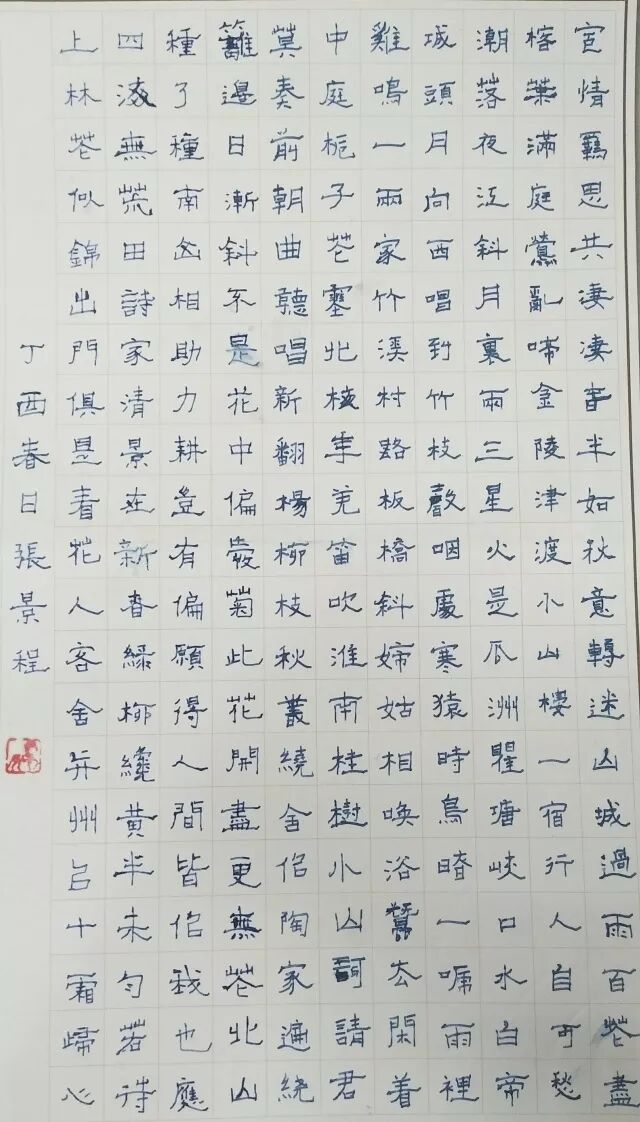 宦情羈思共淒淒春半如秋意轉迷山城過雨百花盡
榕葉滿庭鶯亂啼金陵津渡小山樓一宿行人自可愁
潮落夜江斜月裏兩三星火是瓜洲瞿塘峽口水白帝
城頭月向西唱到竹枝聲咽處寒猿時鳥晴一啼雨裡
雞鳴一兩家竹溪村路板橋斜婦姑相喚浴蠶去閑着
中庭梔子花塞北梅華羌笛吹淮南桂樹小山詞請君
莫奏前朝曲聽唱新翻楊柳枝秋叢繞舍佀陶家遍繞
籬邊日漸斜不是花中偏愛菊此花開盡更無花北山
種了種南山相助力耕豈有偏願得人間皆佀我也應
四海無荒田詩家清景在新春綠柳纔黃半未勻若待
上林花似錦出門俱是看花人客舍并州已十霜歸心
丁酉春日張景程